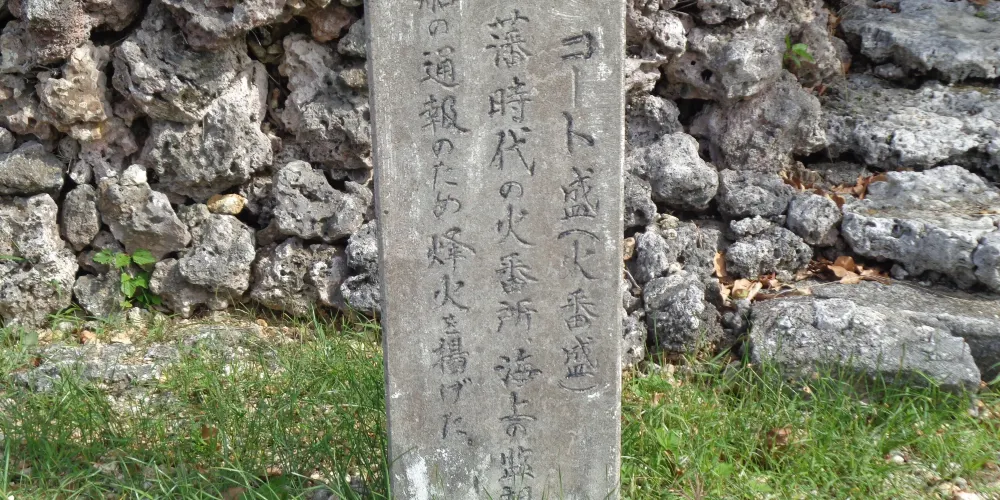 コート盛(火番盛)
藩時代の火番所、海上の監
の通報のため烽火を揚げた。